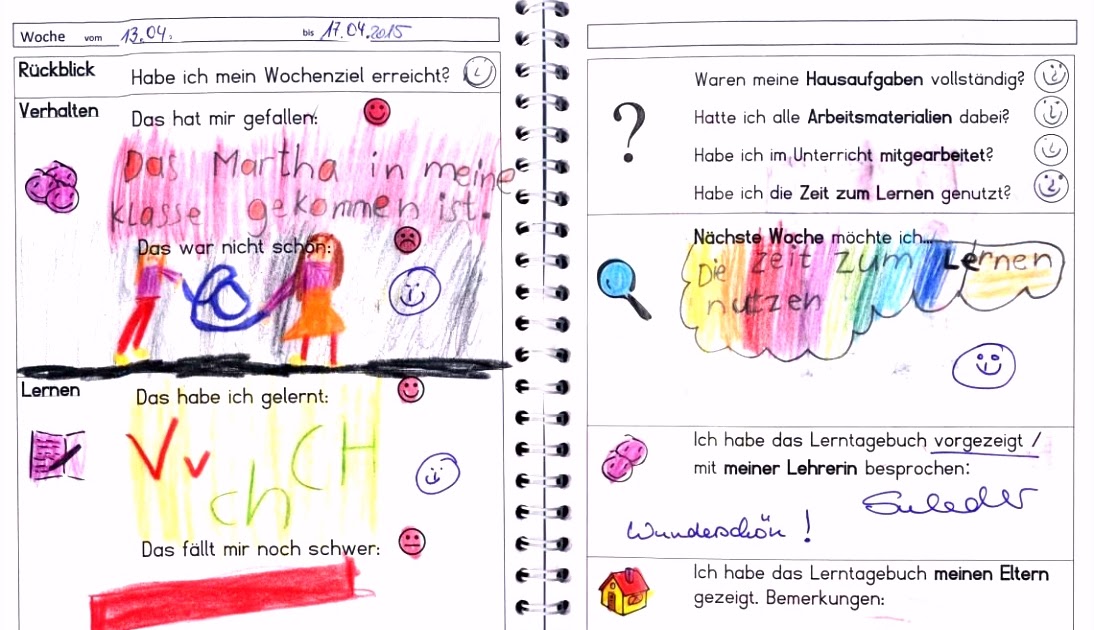 Woche vom 13.04. bis 17.04.2015
Rückblick Habe ich mein Wochenziel erreicht?
Verhalten Das hat mir gefallen:
Das Martha in meine
Klasse gekommen ist.
Das war nicht schön:
Lernen Das habe ich gelernt:
V v
ch CH
Das fällt mir noch schwer:
? Waren meine Hausaufgaben vollständig?
Hatte ich alle Arbeitsmaterialien dabei?
Habe ich im Unterricht mitgearbeitet?
Habe ich die Zeit zum Lernen genutzt?
Nächste Woche möchte ich...
Die Zeit zum Lernen
nutzen
Ich habe das Lerntagebuch vorgezeigt /
mit meiner Lehrerin besprochen:
Wunderschön !
Ich habe das Lerntagebuch meinen Eltern
gezeigt. Bemerkungen: